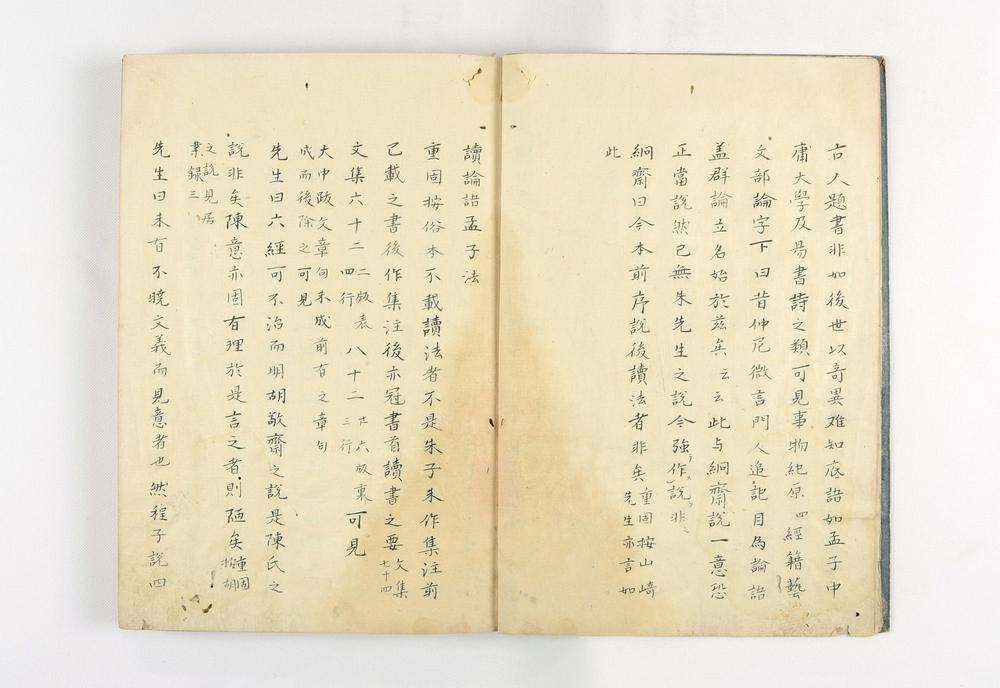 古人題書非如後世以奇異难知底語如孟子中
庸大學及易書詩之類可見事物紀原四經籍藝
文部論字下曰昔仲尼微言門人追記目為論語
盖群論立名始於茲矣云云此与絅齋說一意恐
正當說然已無朱先生之說今強作說非
絅齋曰今本前序說後讀法者非矣重固按山﨑
先生亦言如
此
讀論語孟子法
重固按俗本不載讀法者不是朱子未作集注前
已載之書後作集注後亦冠書首讀書之要文集
七十四
文集六十二二版表
四行八十二六版裏
三行可見
大中跋文章句未成前有之章句
成而後除之可見
先生曰六經可不治而明胡敬齋之說是陳氏之
說非矣陳意亦固有理於是言之者則陋矣重固
按胡
之說見居
業録三
先生曰未有不曉文義而見意者也然程子說四